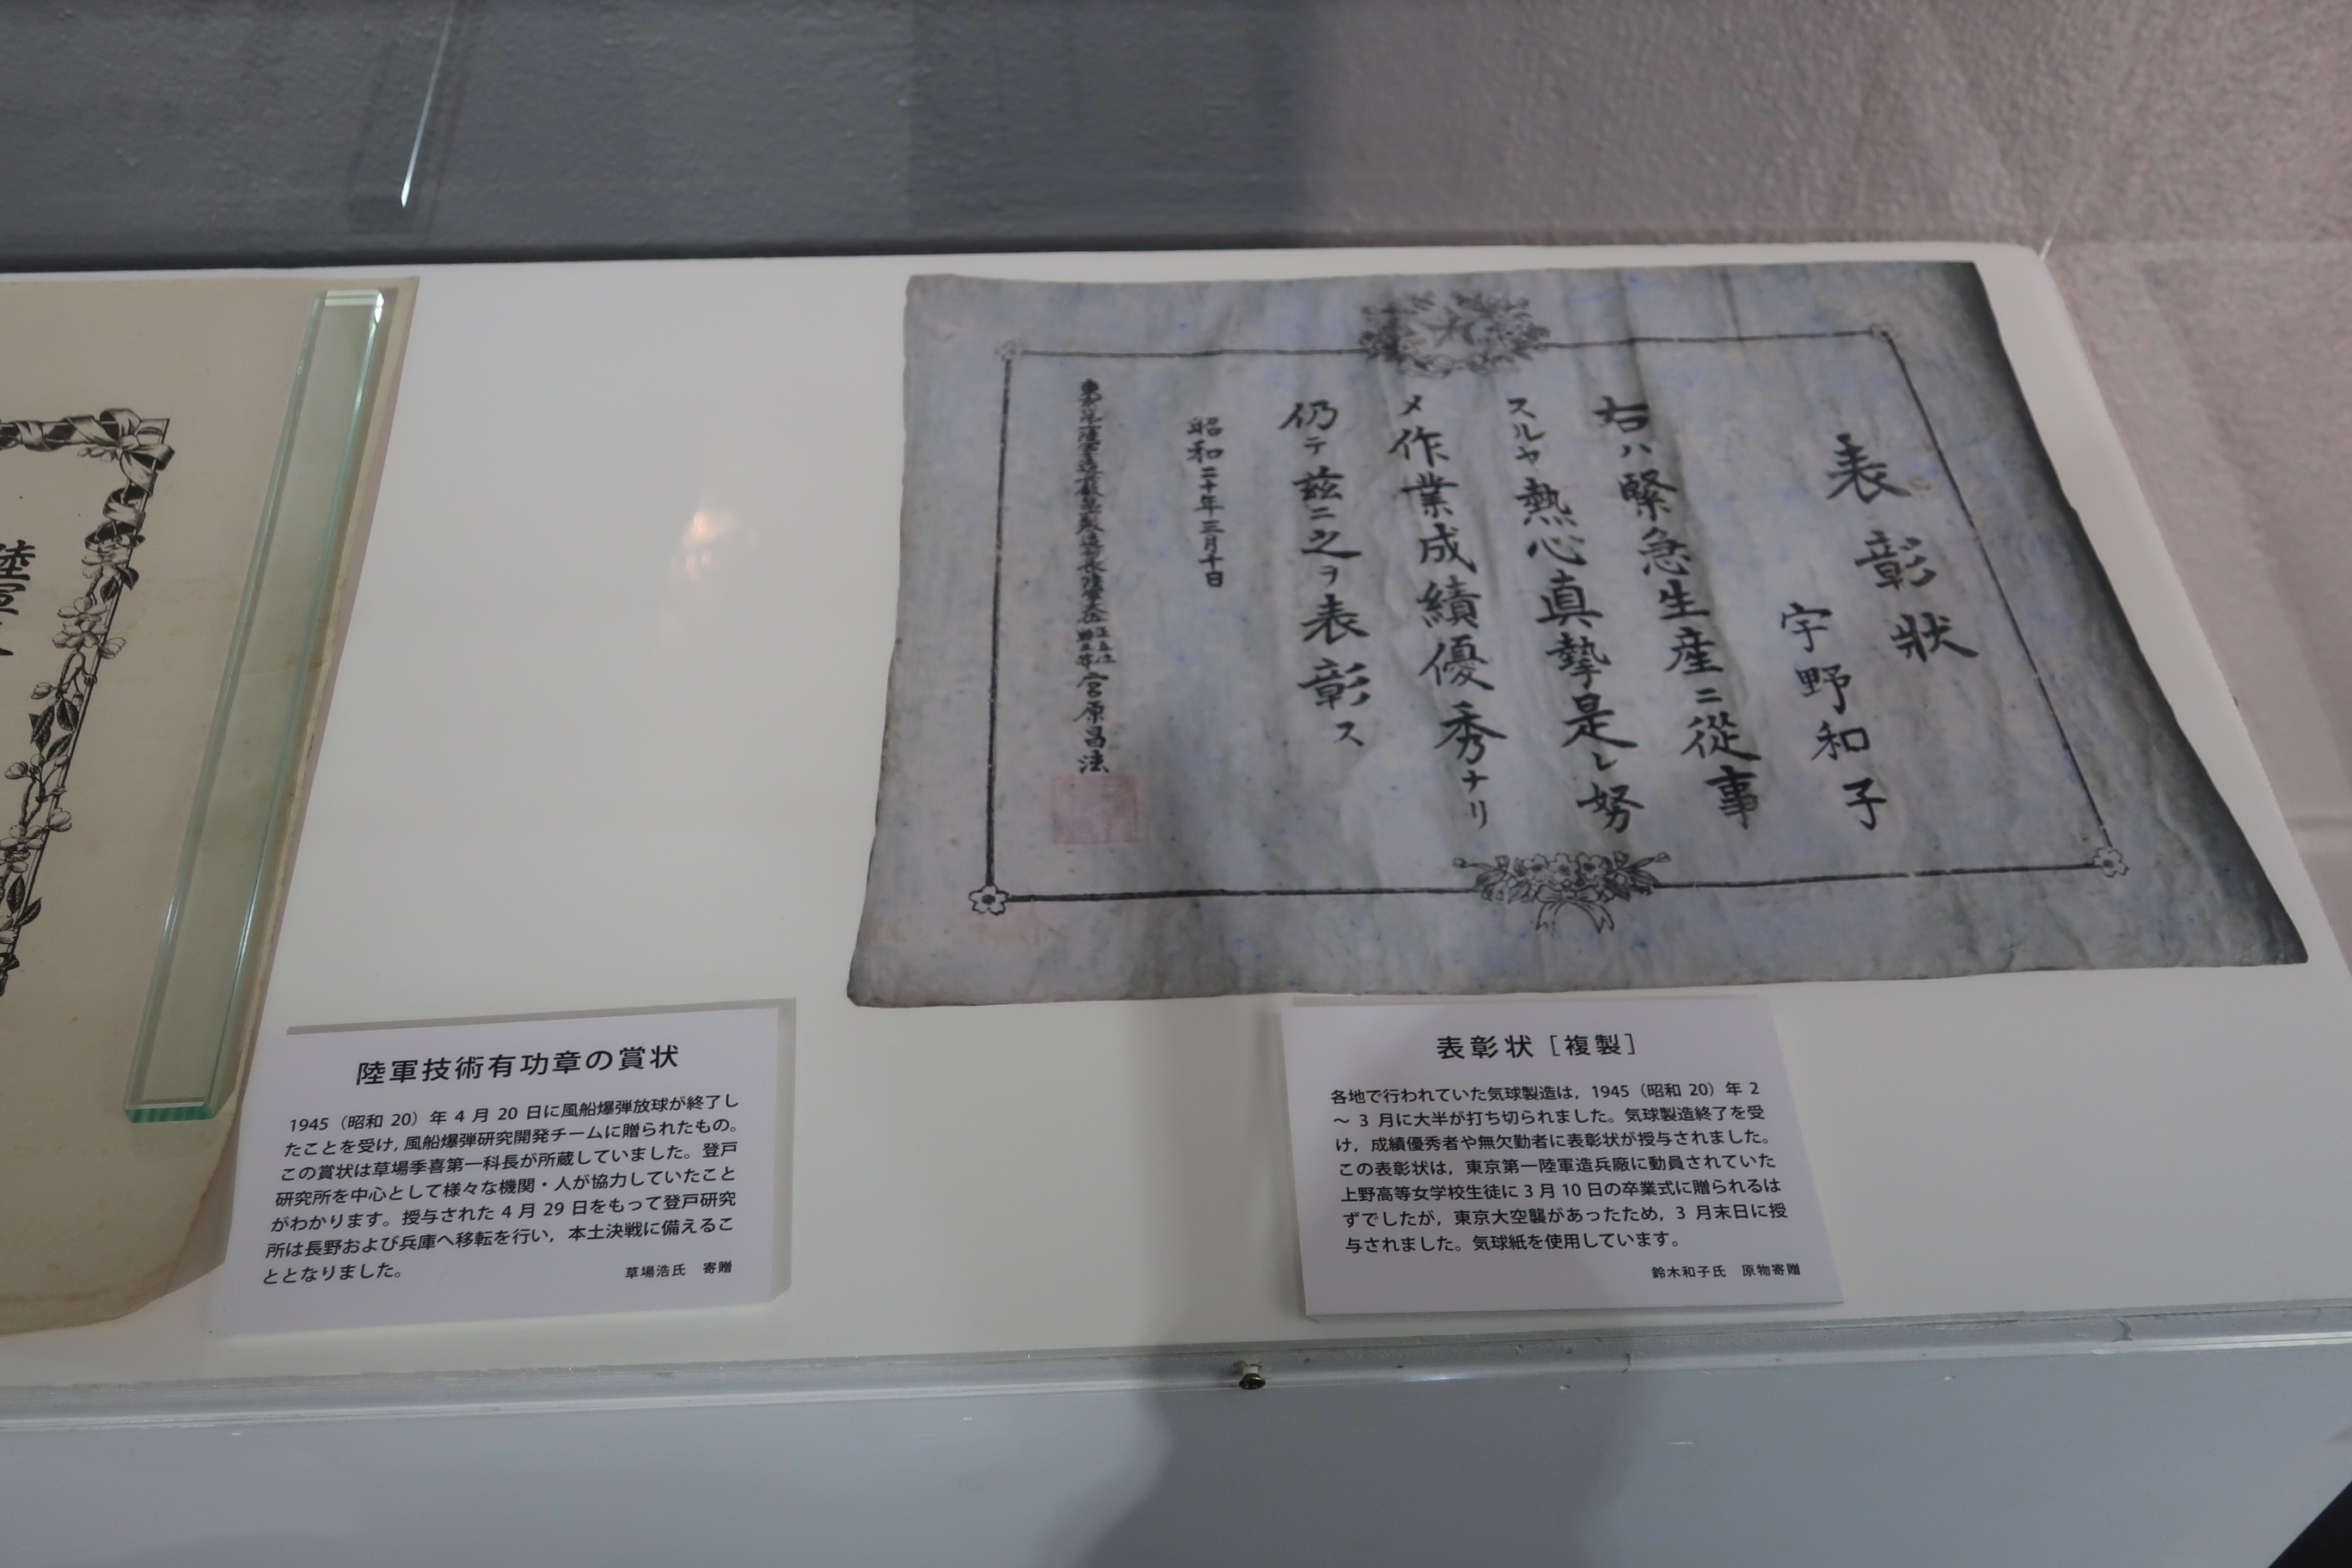 表彰状
宇野和子
右ハ緊急生産ニ從事
スルヤ熱心真摯是レ努
メ作業成績優秀ナリ
仍テ茲ニ之ヲ表彰ス
昭和二十年三月十日
宮原昌法
陸軍
陸軍技術有功章の賞状
1945（昭和 20）年 4 月 20 日に風船爆弾放球が終了し
たことを受け，風船爆弾研究開発チームに贈られたもの。
この賞状は草場季喜第一科長が所蔵していました。登戸
研究所を中心として様々な機関・人が協力していたこと
がわかります。授与された 4 月 29 日をもって登戸研究
所は長野および兵庫へ移転を行い，本土決戦に備えるこ
ととなりました。
草場浩氏　寄贈
表彰状［複製］
各地で行われていた気球製造は，1945（昭和 20）年 2
～ 3 月に大半が打ち切られました。気球製造終了を受
け，成績優秀者や無欠勤者に表彰状が授与されました。
この表彰状は，東京第一陸軍造兵廠に動員されていた
上野高等女学校生徒に 3 月 10 日の卒業式に贈られるは
ずでしたが，東京大空襲があったため，3 月末日に授
与されました。気球紙を使用しています。
鈴木和子氏　原物寄贈